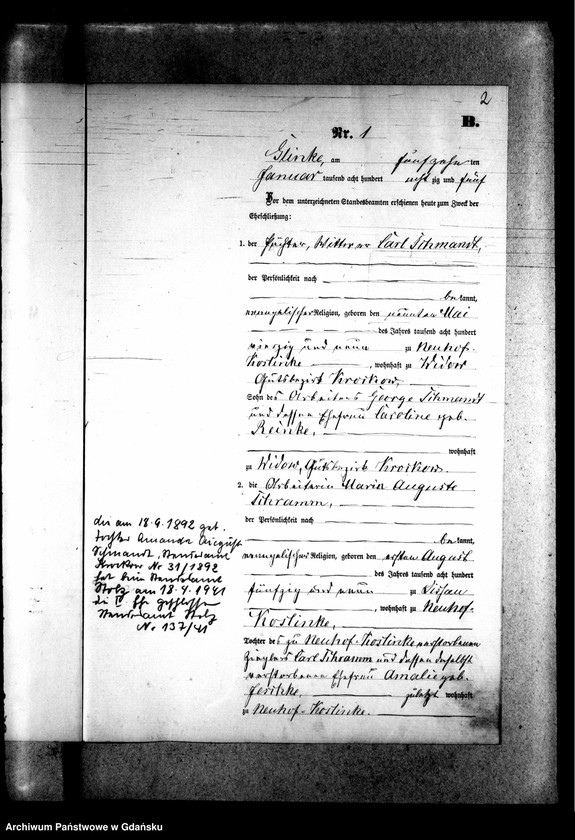 2
B.
Nr. 1
Glinke, am fünfzehn ten
Januar tausend acht hundert acht zig und fünf
Vor dem unterzeichneten Standesbeamten erschienen heute zum Zweck der
Eheschließung:
1. der Pächter, Wittwer Carl Schmandt,
der Persönlichkeit nach
be kannt,
evangelischer Religion, geboren den neunten Mai
des Jahres tausend acht hundert
vierzig und neun zu Neuhof-
Koslinke, wohnhaft zu Widow
Gutsbezirk Krockow,
Sohn des Arbeiters George Schmandt
und dessen Ehefrau Caroline geb.
Reinke,
wohnhaft
zu Widow, Gutsbezirk Krockow.
2. die Arbeiterin Maria Auguste
Schramm,
der Persönlichkeit nach
be kannt,
evangelischer Religion, geboren den ersten August
des Jahres tausend acht hundert
fünfzig und neun zu Lissau
, wohnhaft zu Neuhof-
Koslinke,
Tochter des zu Neuhof-Koslinke verstorbenen
Zieglers Carl Schramm und dessen daselbst
verstorbenen Ehefrau Amalie geb.
zuletzt wohnhaft
zu Neuhof-Koslinke.
die am 18.9.1892 geb.
Tochter Amanda August
Schmandt, Standesamt
Krockow Nr 31/1892
hat beim Standesamt
Stolp am 18.9.1941
die I. Ehe geschlossen
Standesamt Stolp
Nr. 137/41
Archiwum Państwowe w Gdańsku